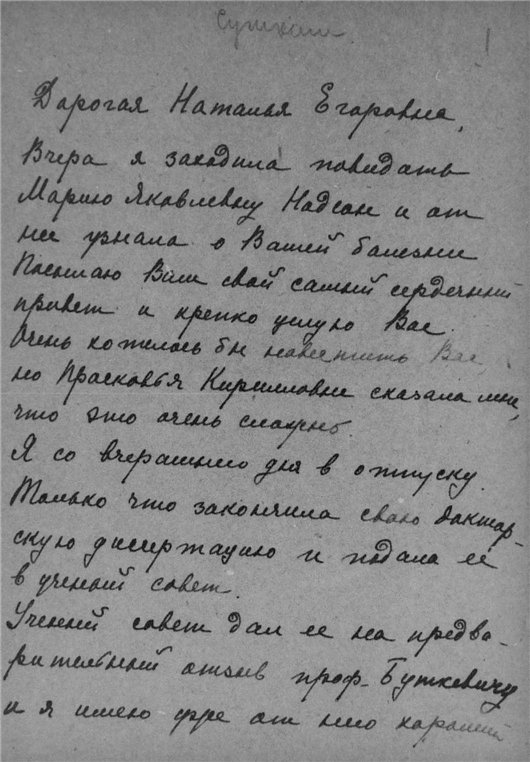 1
Дорогая Наталья Егоровна,
Вчера я заходила повидать
Марию Яковлевну Надсон и от
нее узнала о Вашей болезни
Посылаю Вам свой самый сердечный
привет и крепко целую Вас.
Очень хотелось бы навестить Вас,
но Прасковья Кирилловна сказала мне,
что это очень сложно.
Я со вчерашнего дня в отпуску.
Только что закончила свою доктор-
скую дисертацию и подала ее
в ученый совет.
Ученый совет дал ее на предва-
рительный отзыв проф. Буткевичу
и я имею уже от него хороший